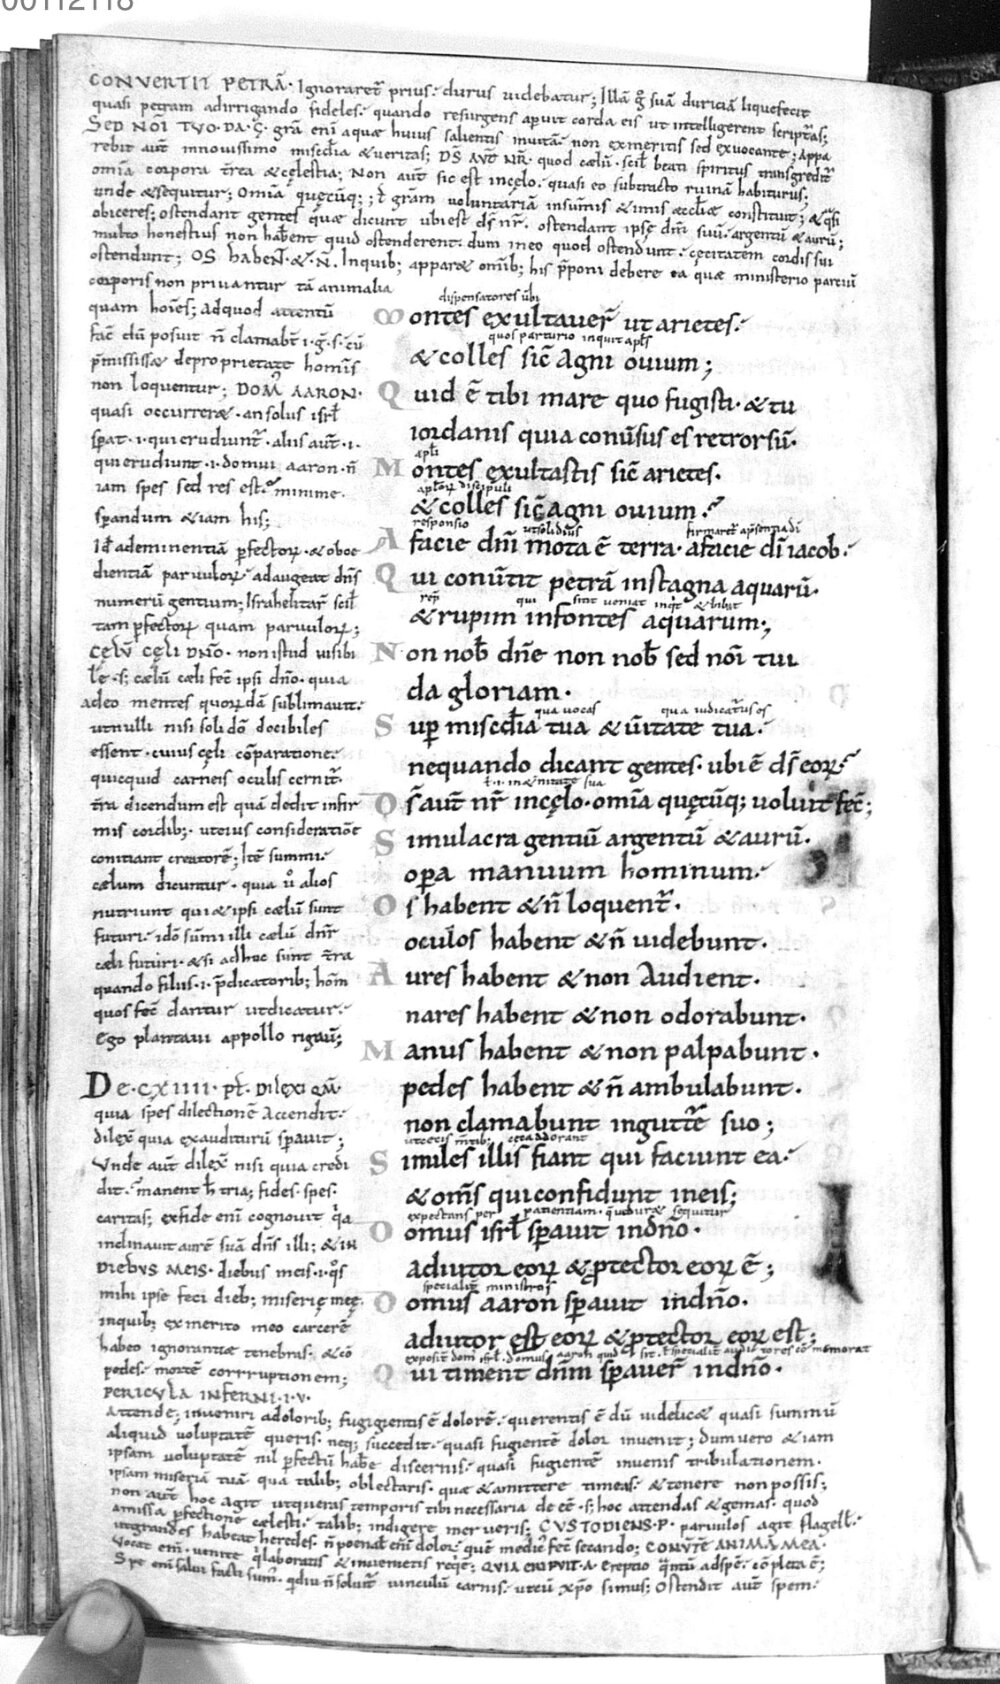 00112118
CONVERTIT PETRĀ· Ignoraret᷑ prius· durus uidebatur; Illā g̊ suā duriciā liquefecit
quasi petram adirrigando fideles· quando resurgens aperuit corda eis ut intelligerent scripturas;
SED NOĪ TVO·DA·G̅· grā enī aquae huius salientis inuitā· non exmeritis sed exuocante; Appa
rebit aut̄ innouissimo misedia & ueritas; DS̄ AVT̄ NR̄· quod cælū· scił beati spiritus transgredit᷑
omīa corpora tr̄ea & cęlestia; Non aut̄ sic est incęlo· quasi eo subtracto ruinā habiturus;
unde & sequitur; Omīa quęcūq;; grām uoluntariā insum̄is & imis aecclīae constituit; & q̄si
obiceres; ostendant gentes quae dicunt ubi est ds̄ nr̄· ostendant ipsę dn̄i suū· argentū & aurū;
multo honestius non hab̄ent quid ostenderent· dum ineo quod ostendunt· cęcitatem cordis sui
ostendunt; OS HABEN̄·&·N̄· Inquib; apparet omīb; his p̄poni debere ea quae ministerio partiū
corporis non priuantur tā animalia
quam hoīes; Adquod attentū
fac̄ dū posuit n̄ clamabt̄ ·i·g̅·s· cū
p̄mississ& deproprietate hominis
non loquentur; DOM̄ AARON·
quasi occurrer&· an solus isrł
sp̄at· ·i· qui erudiunt᷑· aliis aut̄ ·i·
qui erudiunt ·i· domui aaron· n̄
iam spes sed res est· minime
sp̄andum & iam his;
Id ad eminentiā p̄fectoꝝ· & oboe
dientiā paruuloꝝ· adaugeat dn̄s
numerū gentium; Israhelitar̄ scił
tam p̄fectoꝝ quam paruuloꝝ;
CĘLV̄ CĘLI DN̄O· non istud uisibi
le· s; cælū cæli fec̄ ipsi dn̄o· quia
adeo mentes quorundā sublimauit·
utnulli nisi soli dō docibiles
essent· cuius cęli cōparatione·
quicquid carneis oculis cernit᷑·
tr̄a dicendum est quā dedit infir
mis cordib;· uteius consideratiōe
coniciant creatorē; Itē summi·
cælum dicuntur· quia ů alios
nutriunt qui & ipsi cælū sunt
futuri· idō sum̄i illi cælū dn̄r
cæli futuri· & si adhuc sunt tr̄a
quando filius ·i· p̄dicatorib; hom̄
quos fec̄ dantur utdicatur·
Ego plantaui appollo rigauit;
montes exultauer̄ ut arietes·
dispensatores ūbi
& colles sic̄ Agni ouium;
quos parturio inquit apłs
Quid ē tibi mare quo fugisti· & tu
iordanis quia conūsus es retrorsū·
Montes exultastis sic̄ arietes·
apłi
& colles sic̄ agni ouium·
apłoꝝ discipuli
A facie dn̄i mota ē terra· afacie dī iacob·
responsio
Qui conūtit petrā instagna aquarū·
& rupim infontes aquarum;
Non nob̄ dn̄e non nob̄ sed noī tui
da gloriam·
Sup̄ misedīa tua & ūitate tua·
qua uocas qua iudicaturus es
nequando dicant gentes· ubi ē ds̄ eoꝝ·
Ds̄ aut̄ nr̄ incęlo· omīa quęcūq; uoluit fec̄;
Simulacra gentiū argentū & aurū·
op̄a manuum hominum·
Os habent & n̄ loquent᷑·
oculos habent & n̄ uidebunt·
Aures habent & non Audient·
nares habent & non odorabunt·
Manus habent & non palpabunt·
pedes habent & n̄ ambulabunt·
non clamabunt ingutt̄e suo;
Similes illis fiant qui faciunt ea·
& om̄s qui confidunt ineis;
Domus isrł sp̄auit indn̄o·
expectans per patientiam·
adiutor eoꝝ & ꝓtector eoꝝ ē;
Domus aaron sp̄auit indn̄o·
specialit᷑ ministros
adiutor est eoꝝ & ꝓtector eoꝝ est;
Qui timent dn̄m sp̄auer̄ indn̄o·
De·CXIIII· pł· DILEXI QM̄
quia spes dilectionē Accendit·
dilex̄ quia exauditurū sp̄auit;
Vnde aut̄ dilex̄ nisi quia credi
dit· manent h̄ tria; fides· spes·
caritas; exfide enī cognouit q̄a
inclinauit aurē suā dn̄s illi; & IN
DIEBVS MEIS· diebus meis ·i· q̊s
mihi ipse feci dieb; miserię męę
inquib; ex merito meo carcerē
habeo ignorantiae tenebras· & cō
pedes· mortē corruptionem;
PERICVLA INFERNI·I·V·
Attende; inueniri adolorib; fugientis ē dolorē· querentis ē dū uidelic& quasi summū
aliquid uoluptatē queris· neq; succedit· quasi fugientē dolor inuenit; dum uero & iam
ipsam uoluptatē nil p̄fectū habe discernis· quasi fugientē inuenis tribulationem·
ipsam miseriā tuā qua talib; oblectaris· quae & amittere timeas· & tenere non possis;
non aut̄ hoc agit utqueras temporis tibi necessaria de eē· s; hoc attendas & gemas· quod
amissa p̄fectionē cælesti· talib; indigere merueris; CVSTODIENS·P· paruulos agit flagell·
utgrandes habeat heredes· n̄ poenał enī dolor quē medic̄ fec̄ secando; CONVTE ANIMA MEA·
Vocat enī· uenite q̄ laboratis & inuenietis req̄ē; QVIA ERIPVIT·A· Ereptio q̄ntū adspē· cōpleta ē;
Spe enī salui facti sum̄· q̄diu n̄ soluit᷑ uinculū carnis· uteū xp̄o simus; Ostendit aut̄ spem·